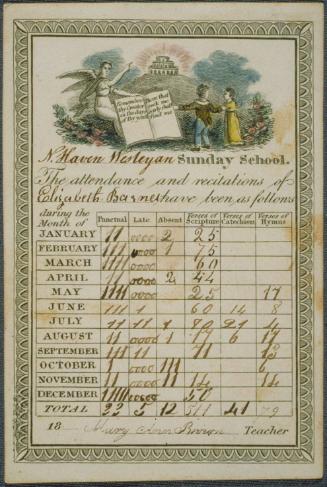 Remember
thy Creator
in the days
of thy youth
Those that
seek me
early shall
find me
N. Haven Wesleyan Sunday School.
The attendance and recitations of
Elizabeth Barnes have been as follows
during the
Month of
Punctual Late Absent Verses of Scripture Verses of Catechism Verses of Hymns
JANUARY 11 0000 2 25
FEBRUARY 111 000 1 75
MARCH 1111 0000 60
APRIL 11 0000 2 44
MAY 1111 0000 25 17
JUNE 111 1 60 14 8
JULY 11 11 1 82 21
AUGUST 11 0000 1 6
SEPTEMBER 111 11 71
OCTOBER 1 0000 111 6
NOVEMBER 11 0000 11 14 14
DECEMBER 50
TOTAL 22 5 12 511 41 79
18 Mary Ann Brown Teacher